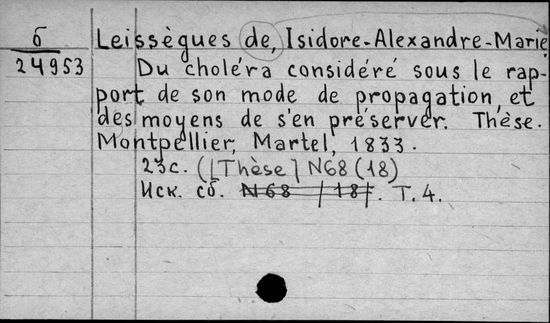 б Leissègues de, Isidore-Alexandre-Marie
24953 Du choléra considéré sous le rap-
port de son mode de propagation, et
des moyens de s'en préserver. Thèse.
Montpellier, Martel, 1833.
23c. ([Thèse] N68 (18)
Иск. сб. N 68 /18/. Т. 4.